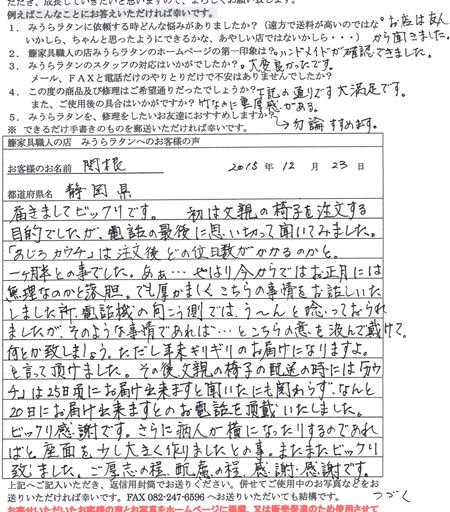 例えばこんなことにお答えいただければ幸いです。
1. みうらラタンに依頼する時どんな悩みがありましたか?(遠方で送料が高いのではないかしら、ちゃんと思ったようにできるかな、あやしい店ではないかしら・・・)
お店は友人から聞きました。
2. 籐家具職人の店みうらラタンのホームページの第一印象は?ハンドメイドが確認できました。
3. みうらラタンのスタッフの対応はいかがでしたか?大変良かったです。
メール、FAXと電話だけのやりとりだけで不安はありませんでしたか?
4. この度の商品及び修理はご希望通りだったでしょうか?下記の通りです大満足です。
また、ご使用後の具合はいかがですか?竹なのに重厚感がある。
5. みうらラタンを、修理をしたいお友達におすすめしますか?→勿論すすめます。
※ できるだけ手書きのものを郵送いただければ幸いです。
籐家具職人の店 みうらラタンへのお客様の声
お客様のお名前 関根 2015年 12月 23日
都道府県名 静岡県
届きましてビックリです。 初は父親の椅子を注文する
目的でしたが、電話の最後に思い切って聞いてみました。
「あじろカウチ」は注文後どの位日数がかかるのかと。
一ヶ月半との事でした。あぁ…やはり今からではお正月には
無理なのかと落胆。でも厚かましくこちらの事情をお話しいた
しました所電話機の向こう側では、う〜んと唸っておられ
ましたが、そのような事情であれば…とこちらの意を汲んで戴けて、
何とか致しましょう。ただし年末ギリギリのお届けになりますよ。
と言って頂けました。その後父親の椅子の配送の時には「カウ
チ」は25日頃にお届け出来ますと聞いたにも関わらず、なんと
20日にお届け出来ますとのお電話を頂戴いたしました。
ビックリ感謝です。さらに病人が横になったりするのであれ
ばと、座面を少し大きく作りましたとの事。またまたビックリ
致しました。ご厚志の程、配慮の程、感謝・感謝です。
上記へご記入いただき、返信用封筒でお送りください。併せてご使用中のお写真などをお
送りいただければ幸いです。FAX 082-247-6596 へお送りいただいても結構です。
つづく
お寄せいただいたお客様の声とお写真をホームページに掲載、又は販売促進のため使用させて